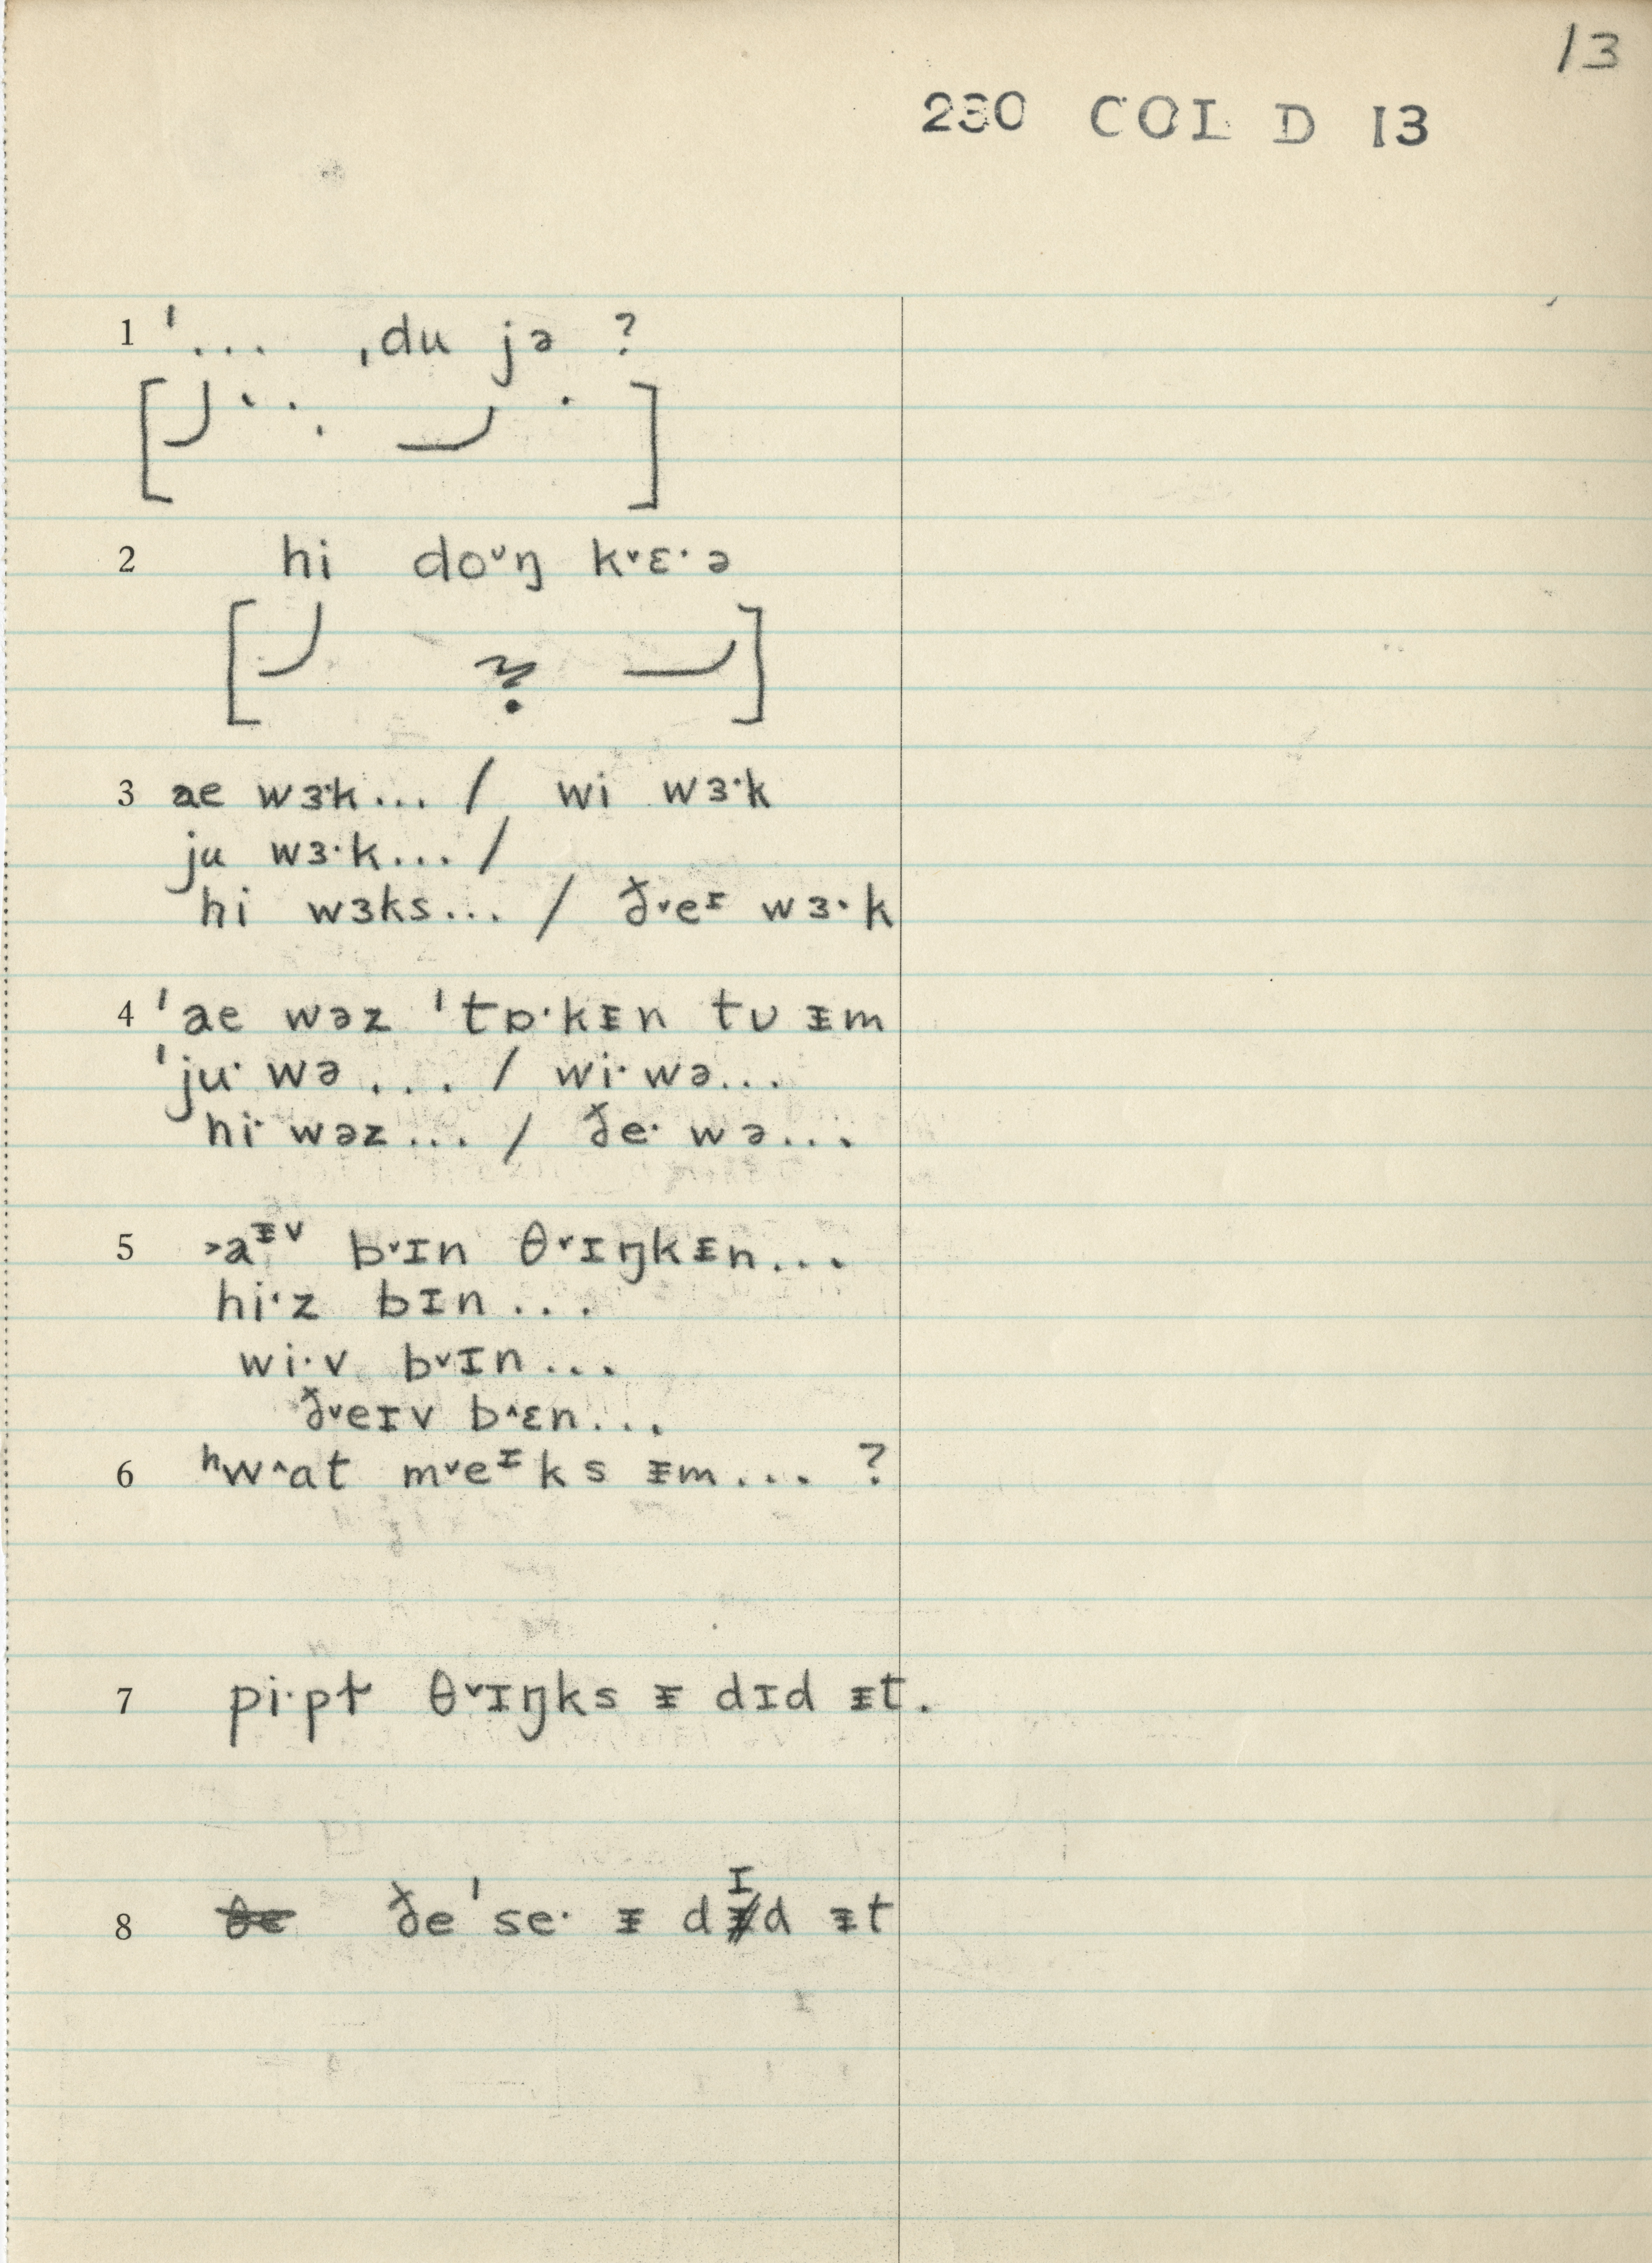 13
230 COL D 13
1 ˈ... ˌdu jə ?
2 hi do˅ŋ k˅ɛ·ə
3 ae wɜ·k... / wi wɜ·k
ju wɜ·k... /
hi wɜks... / ð˅eᶦ wɜ·k
4 ˈae wəz ˈtɒ·kᵻn tʊ ᵻm
ˈju· wə .... / wi· wə...
hi· wəz... / ðe· wə...
5 ˃aᵻv b˅ɪn θ˅ɪŋkᵻn...
hi·z bɪn...
wi·v b˅ɪn...
ð˅eɪv b˄ɛn...
6 ʰw˄at m˅eᶦks ᵻm... ?
7 pi·pɫ θ˅ɪŋks ᵻ dɪd ᵻt.
8 ðeˈse· ᵻ dɪd ᵻt